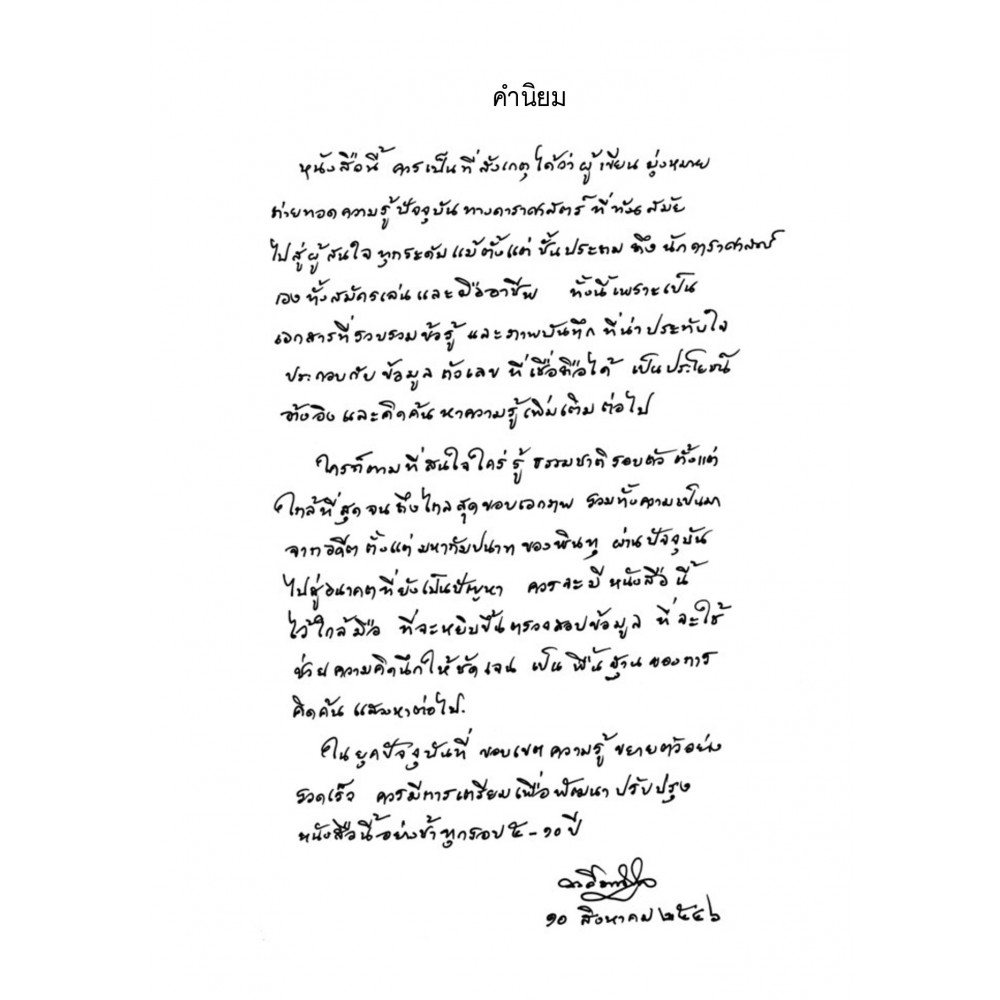 คำนิยม
หนังสือนี้ ควรเป็นที่สังเกตุได้ว่าผู้เขียน มุ่งหมาย
ถ่ายทอดความรู้ปัจจุบันทางดาราศาสตร์ ที่ทันสมัย
ไปสู่ผู้สนใจทุกระดับแม้ตั้งแต่ ชั้นประถม ถึง นักดาราศาสตร์
เอง ทั้งสมัครเล่น และมืออาชีพ ทั้งนี้เพราะเป็น
เอกสารที่รวบรวมข้อรู้ และภาพบันทึก ที่น่าประทับใจ
ประกอบกับ ข้อมูล ตัวเลข ที่เชื่อถือได้ เป็นประโยชน์
อ้างอิง และคิดค้น หาความรู้เพิ่มเติม ต่อไป
ใครก็ตามที่สนใจใคร่รู้ ธรรมชาติ รอบตัว ตั้งแต่
ใกล้ที่สุด จนถึงไกลสุดขอบเอกภพ รวมทั้งความเป็นมา
จากอดีต ตั้งแต่ มหากัมปนาทของพินทุ ผ่านปัจจุบัน
ไปสู่อนาคตที่ยังเป็นปัญหา ควรจะมี หนังสือนี้
ไว้ใกล้มือ ที่จะหยิบขึ้นตรวจสอบข้อมูล ที่จะใช้
ช่วยความคิดนึกให้ชัดเจน เป็นพื้นฐานของการ
คิดค้น แสวงหาต่อไป.
ในยุคปัจจุบันที่ ขอบเขตความรู้ ขยายตัวอย่าง
รวดเร็ว ควรมีการเตรียมเพื่อพัฒนา ปรับปรุง
หนังสือนี้อย่างช้าทุกรอบ ๕-๑๐ ปี
๑๐ สิงหาคม ๒๕๔๖